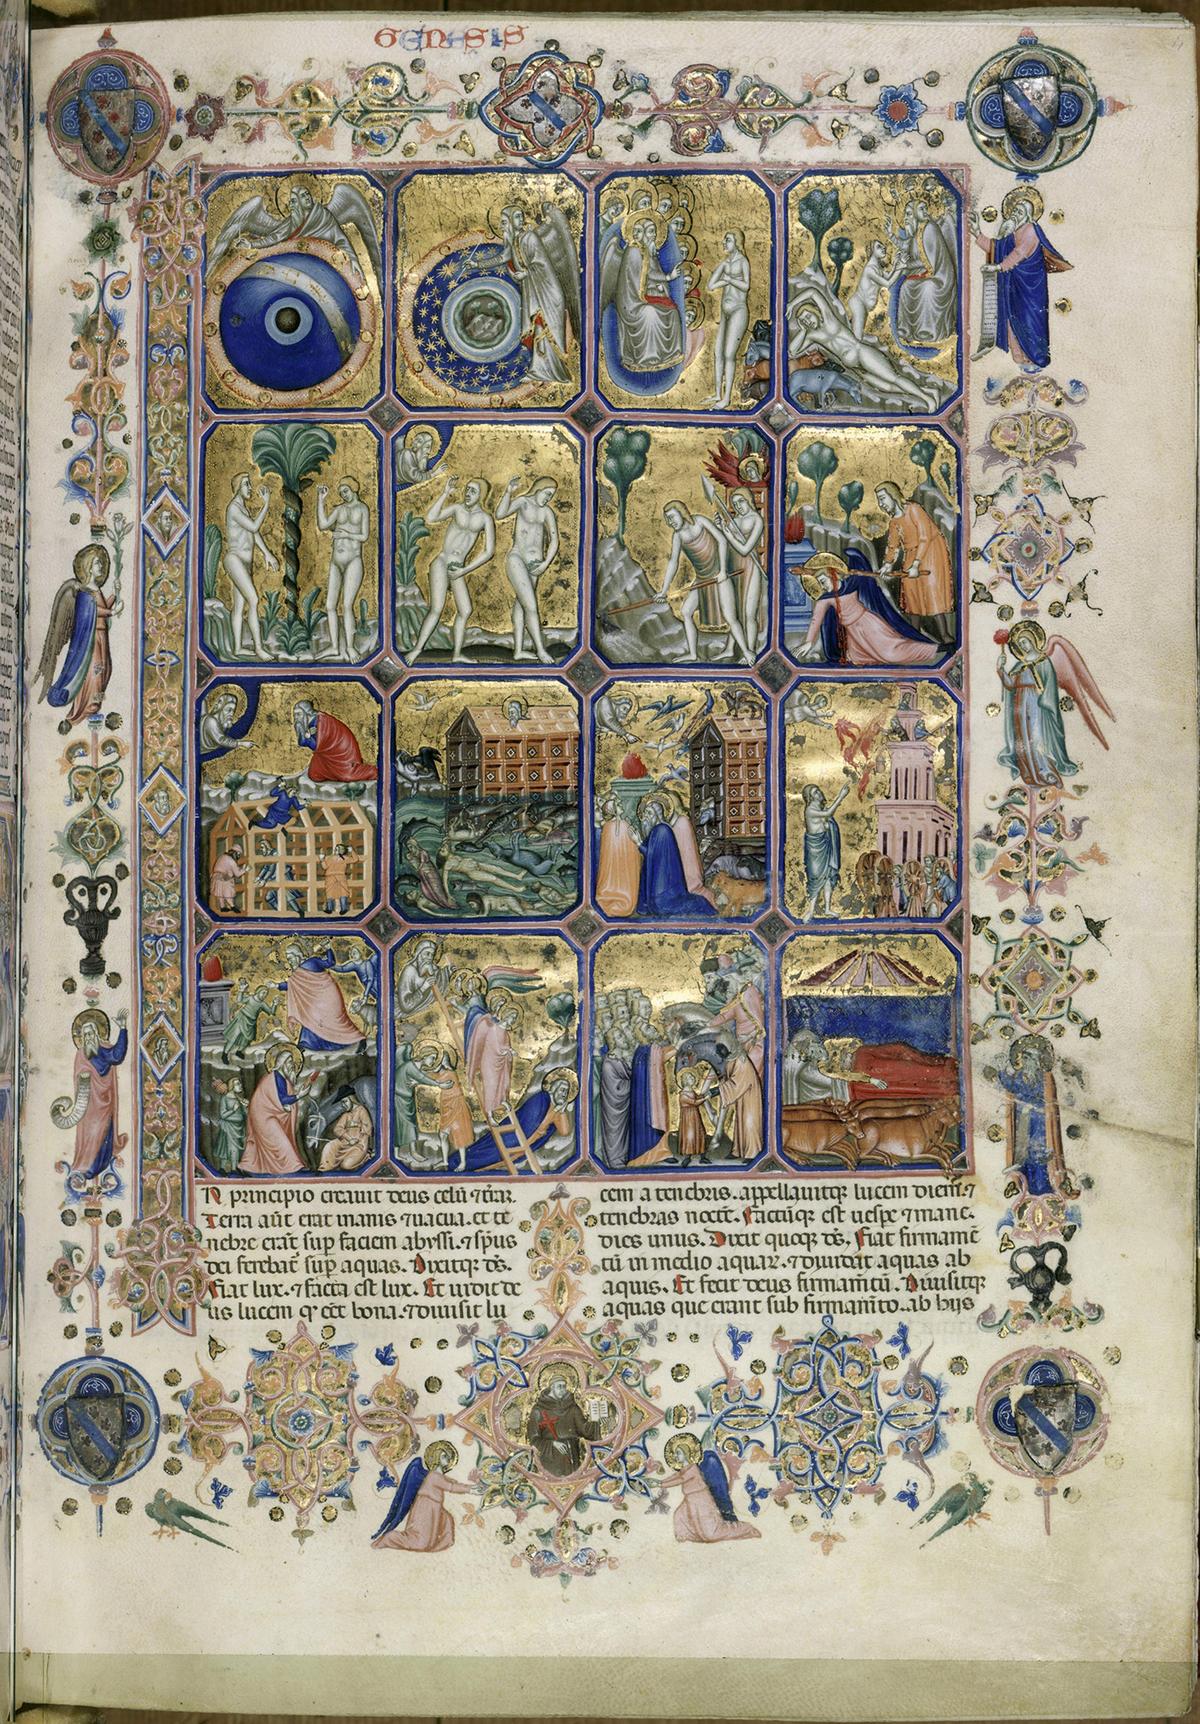 GENESIS
N principio creavit deus celū ⁊ t̄rāʒ.
Terra aūt erat inanis ⁊ uacua. et te
nebre erāt sup faciem abyssi. ⁊ sp̄us
dei ferebat̄ sup aquas. Dixitqʒ ds̄.
Fiat lux. ⁊ facta est lux. Et uidit de
us lucem qr̄ eēt bona. ⁊ diuisit lu
cem a tenebris. appellauitqʒ lucem diem. ⁊
tenebras noctē. Factūqʒ est uespe ⁊ mane.
dies unus. Dixit quoqʒ ds̄. Fiat firmamē
tū in medio aquaꝝ. ⁊ diuidat aquas ab
aquis. Et fecit deus firmam̄tū. Diuisitqʒ
aquas que erant sub firmam̄to. ab hijs